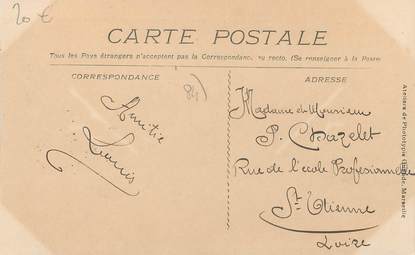 20 €
CARTE POSTALE
Tous les Pays étrangers n'acceptent pas la Correspondance au recto. (Se renseigner à la Poste)
CORRESPONDANCE
ADRESSE
84)
Amitié
Madame et Monsieur
P. Chazelet
Rue de l'école Professionnelle
St Etienne
Loire
Ateliers de Phototypie
Marseille